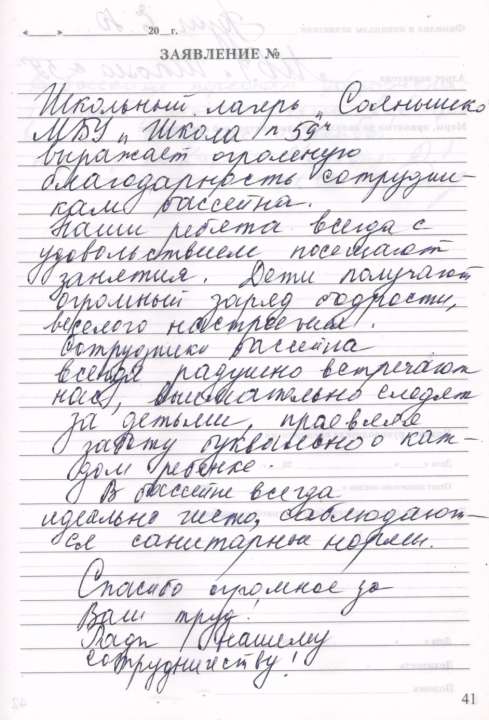 «____»__________20__г.
ЗАЯВЛЕНИЕ №
Школьный лагерь „Солнышко
МБУ „Школа №59"
выражает огромную
благодарность сотрудни-
кам бассейна.
Наши ребята всегда с
удовольствием посещают
занятия. Дети получают
огромный заряд бодрости,
веселого настроения.
Сотрудники бассейна
всегда радушно встречают
нас, внимательно следят
за детьми, проявляя
заботу буквально о каж-
дом ребенке.
В бассейне всегда
идеально чисто, соблюдают-
ся санитарные нормы.
Спасибо огромное за
Ваш труд!
Рады нашему
сотрудничеству!
41